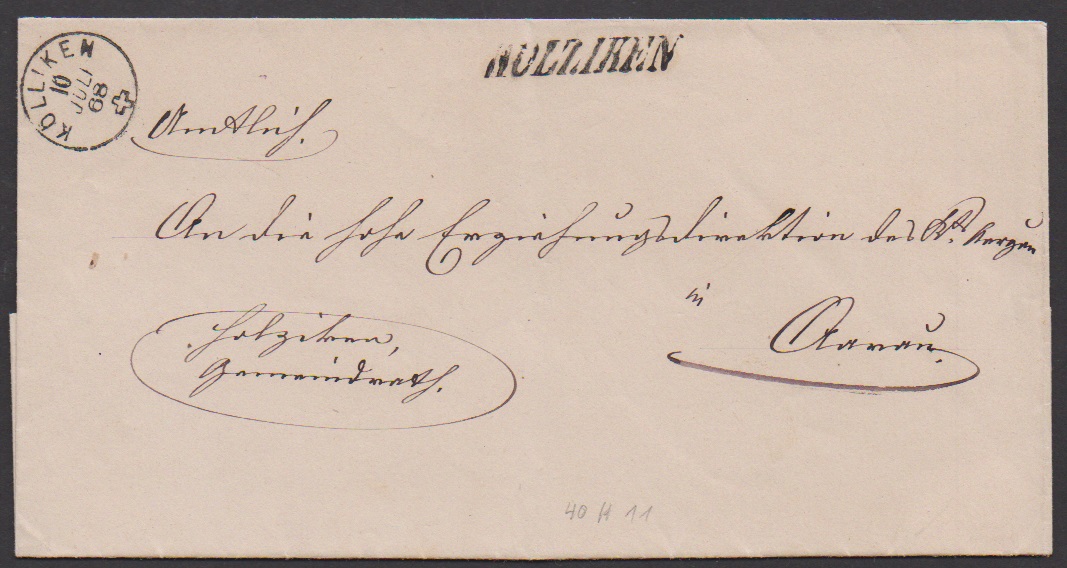 KÖLLIKEN
10
JULI
68
HOLZIKEN
Amtlich.
An die hohe Erziehungsdirektion des Kts. Aargau
in
Aarau.
Holziken,
Gemeindrath.
40 H 11